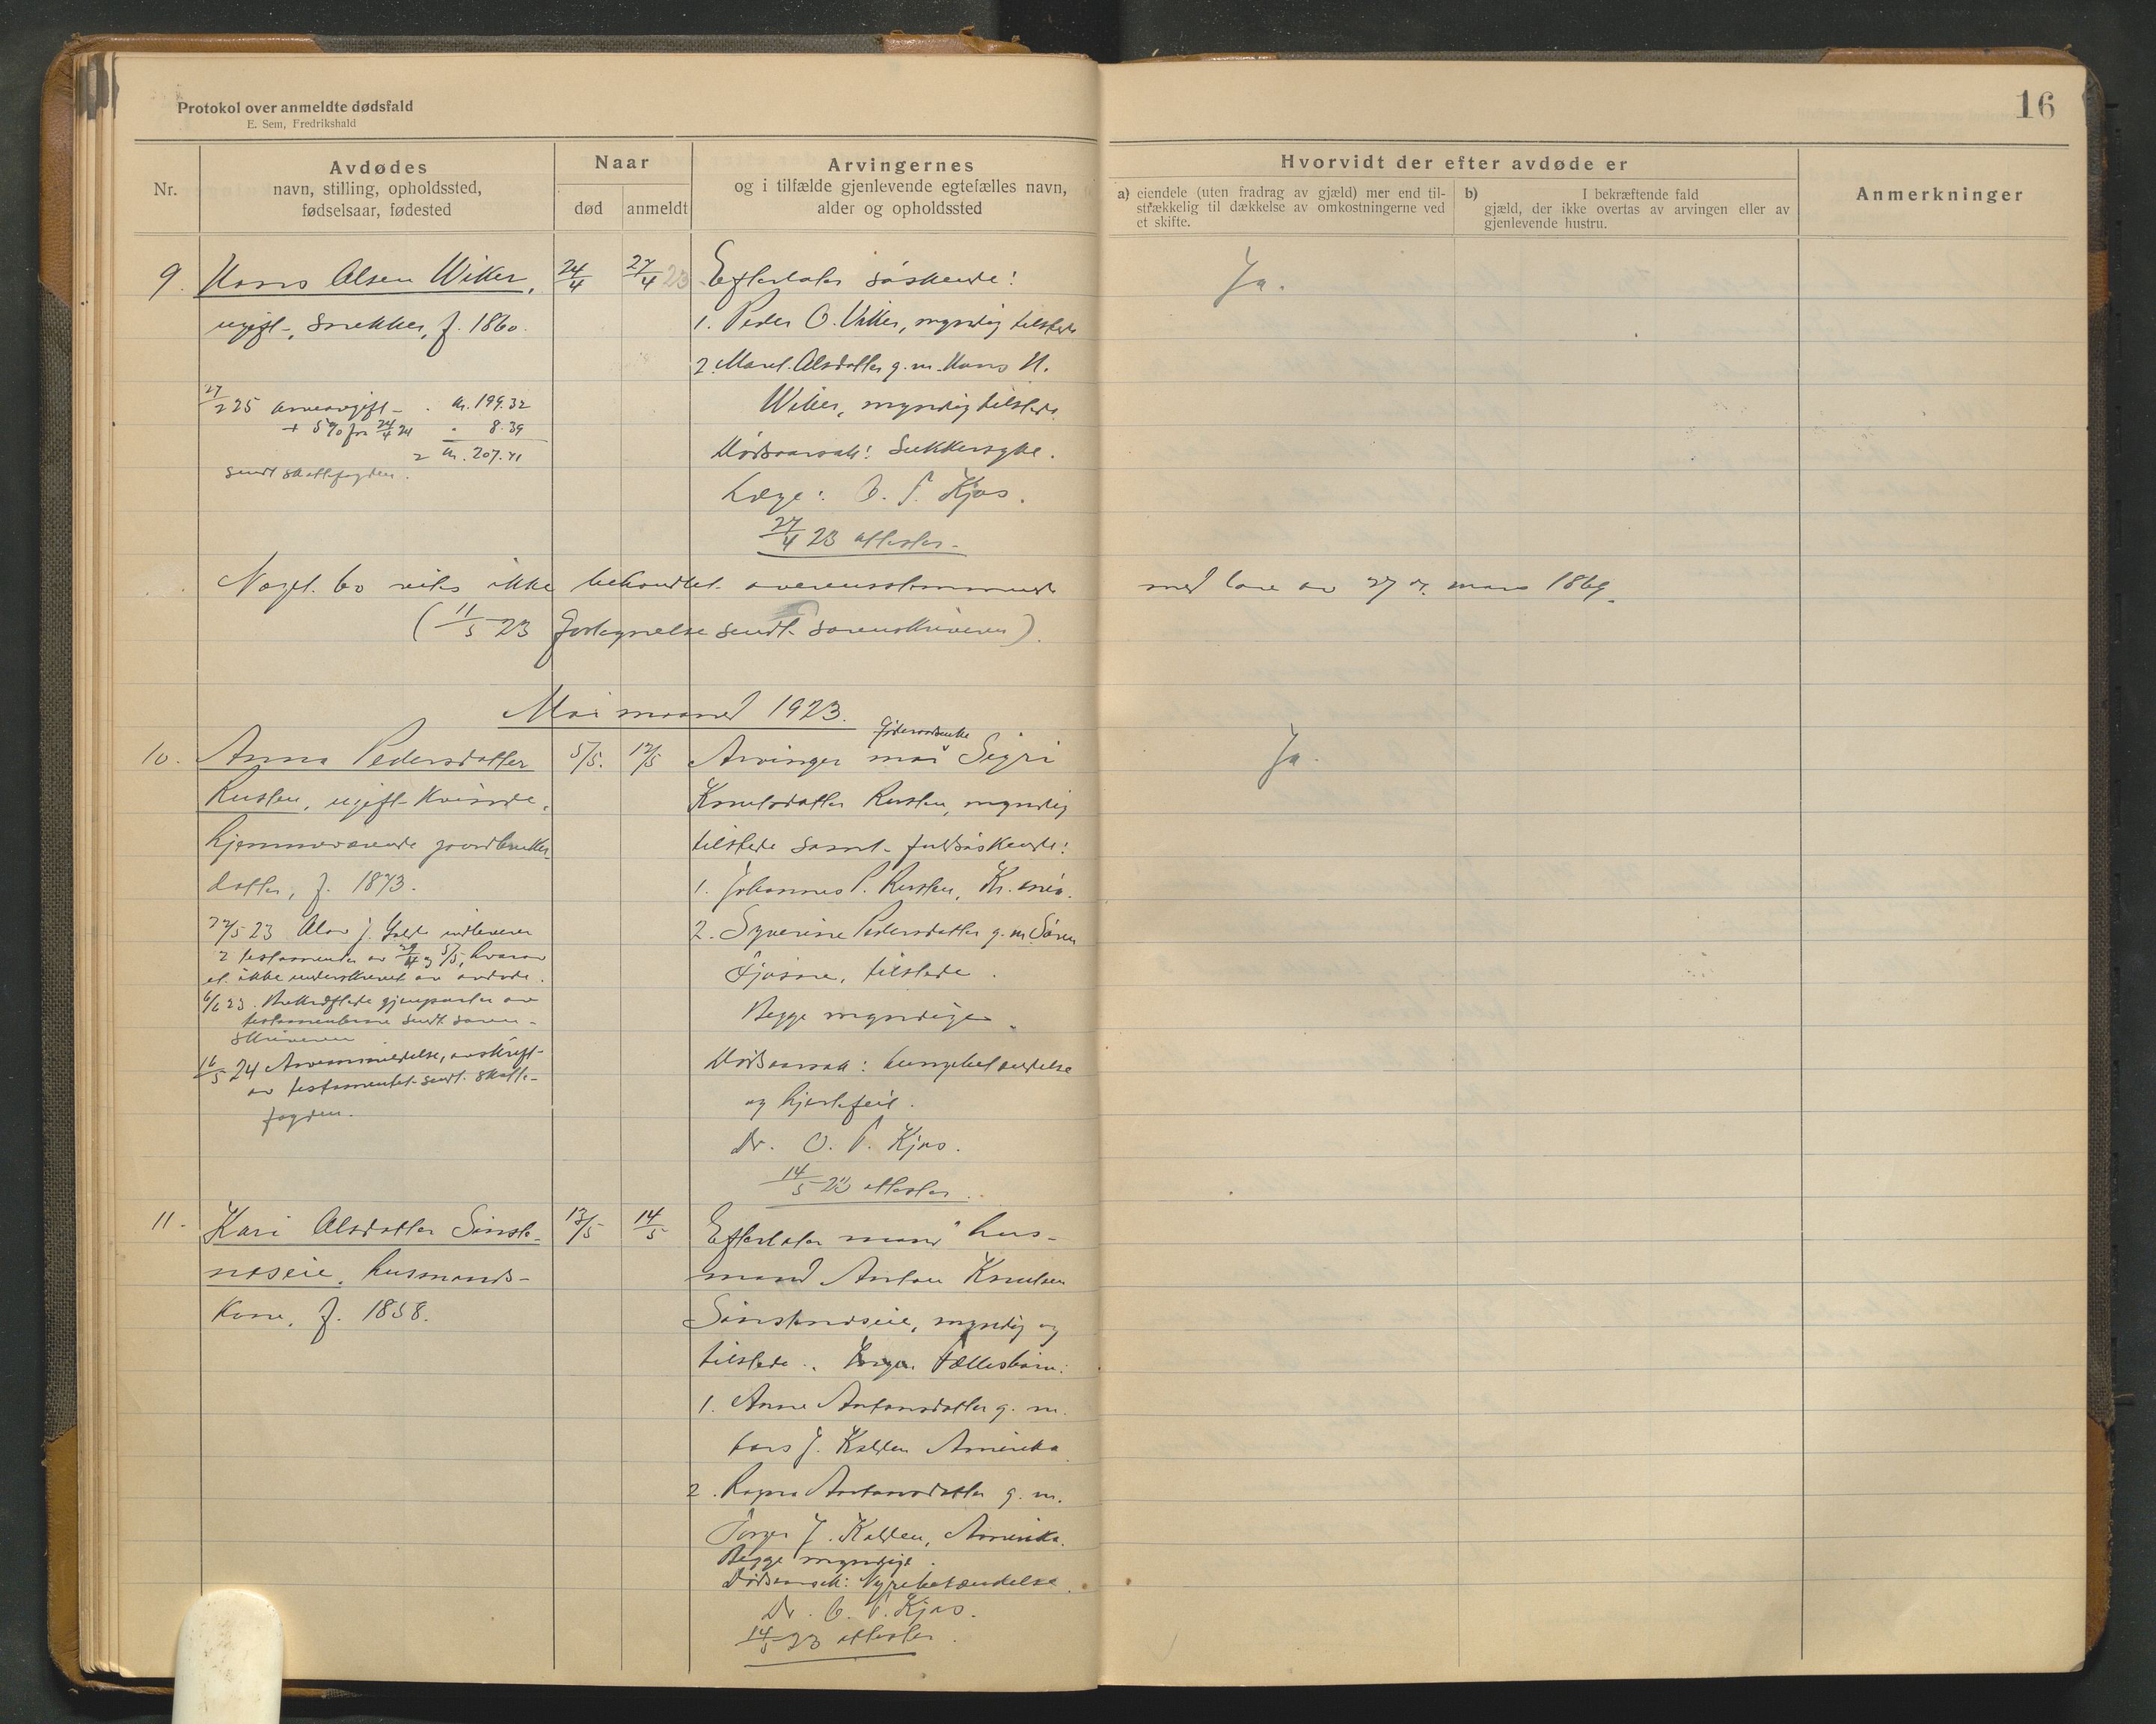 Protokol over anmeldte dødsfald
E. Sem, Fredrikshald
16
Nr.
Avdødes
navn, stilling, opholdssted,
fødselsaar, fødested
Naar
død
anmeldt
Arvingernes
og i tilfælde gjenlevende egtefælles navn,
alder og opholdssted
Hvorvidt der efter avdøde er
a) eiendele (uten fradrag av gjæld) mer end til-
strækkelig til dækkelse av omkostningerne ved
et skifte.
b) I bekræftende fald
gjæld, der ikke overtas av arvingen eller av
gjenlevende hustru.
Anmerkninger
9. Hans Olsen Wiker,
ugift, snekker, f. 1860.
24/4
27/4 23
Efterlater søskende:
1. Peder O. Viker, myndig tilstede
2. Marit Olsdatter g. m. Hans H.
Wiker, myndig tilstede.
Dødsaarsak: Sukkersyke.
Læge: O. P. Kjos.
27/4 23 attester.
Ja.
27/2 25 arveavgift kr. 199.32
+ 5% fra 24/4 24 " 8.39
kr. 207.71
sendt skattefogden.
Noget bo vites ikke behandlet overensstemmende med lov av 27 mars 1869.
(11/5 23 fortegnelse sendt sorenskriveren).
Mai maaned 1923.
10. Anna Pedersdatter
Rusten, ugift kvinde,
hjemmeværende jordbruker-
datter, f. 1873.
5/5.
12/5
Arvinger mor Sigri
Knutsdatter Rusten, myndig
tilstede samt søskende:
1. Johannes P. Rusten, Kr.ania.
2. Syverine Pedersdatter g. m. Søren
tilstede.
Begge myndige.
Dødsaarsak: Lungebetændelse
og hjertefeil.
Dr. O. P. Kjos.
14/5 23 attester.
Ja.
22/5 23 Olav J. indleverer
2 testamenter av 29/4 og 5/5, hvorav
et ikke underskrevet av avdøde.
6/6 23. Bekræftede gjenparter av
testamenterne sendt soren-
skriveren
16/5 24 Arveanmeldelse, avskrift
av testamentet sendt skatte-
fogden.
11. Kari Olsdatter Sønste-
nøseie, husmands-
kone, f. 1858.
13/5
14/5
Efterlater mand hus-
mand Anton Knutsen
myndig og
tilstede. Fællesbørn:
1. Anne Antonsdatter g. m.
Lars J. Kolden Amerika
2. Ragna Antonsdatter g. m.
J. Kolden, Amerika.
Begge myndige.
Dødsaarsak: Nyrebetændelse.
Dr. O. P. Kjos.
14/5 23 attester.